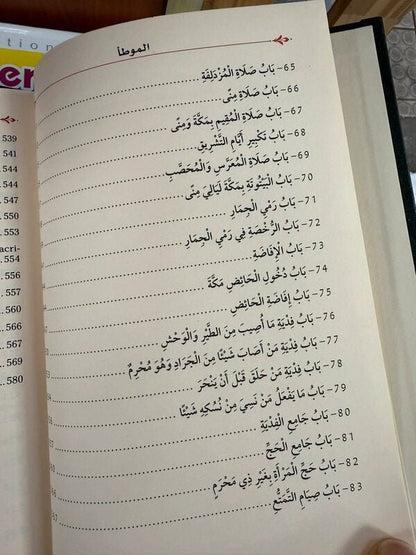 tion
en
539
541
544
544
547
550
553
acri-
. 554
. 556
. 557
. 560
567
569
580
الموطأ
65- بَابُ صَلَاةِ الْمُزْدَلِفَةِ
66- بَابُ صَلَاةِ مِنًى
67- بَابُ صَلَاةِ الْمُقِيمِ بِمَكَّةَ وَمِنًى
68- بَابُ تَكْبِيرِ أَيَّامِ التَّشْرِيقِ
69- بَابُ صَلَاةِ الْمُعَرَّسِ وَالْمُحَصَّبِ
70- بَابُ الْبَيْتُوتَةِ بِمَكَّةَ لَيَالِيَ مِنًى
71- بَابُ رَمْيِ الْجِمَارِ
72- بَابُ الرُّخْصَةِ فِي رَمْيِ الْجِمَارِ
73- بَابُ الْإِفَاضَةِ
74- بَابُ دُخُولِ الْحَائِضِ مَكَّةَ
75- بَابُ إِفَاضَةِ الْحَائِضِ
76- بَابُ فِدْيَةِ مَا أُصِيبَ مِنَ الطَّيْرِ وَالْوَحْشِ
77- بَابُ فِدْيَةِ مَنْ أَصَابَ شَيْئًا مِنَ الْجَرَادِ وَهُوَ مُحْرِمٌ
78- بَابُ فِدْيَةِ مَنْ حَلَقَ قَبْلَ أَنْ يَنْحَرَ
79- بَابُ مَا يَفْعَلُ مَنْ نَسِيَ مِنْ نُسُكِهِ شَيْئًا
80- بَابُ جَامِعِ الْفِدْيَةِ
81- بَابُ جَامِعِ الْحَجِّ
82- بَابُ حَجِّ الْمَرْأَةِ بِغَيْرِ ذِي مَحْرَمٍ
83- بَابُ صِيَامِ التَّمَتُّعِ